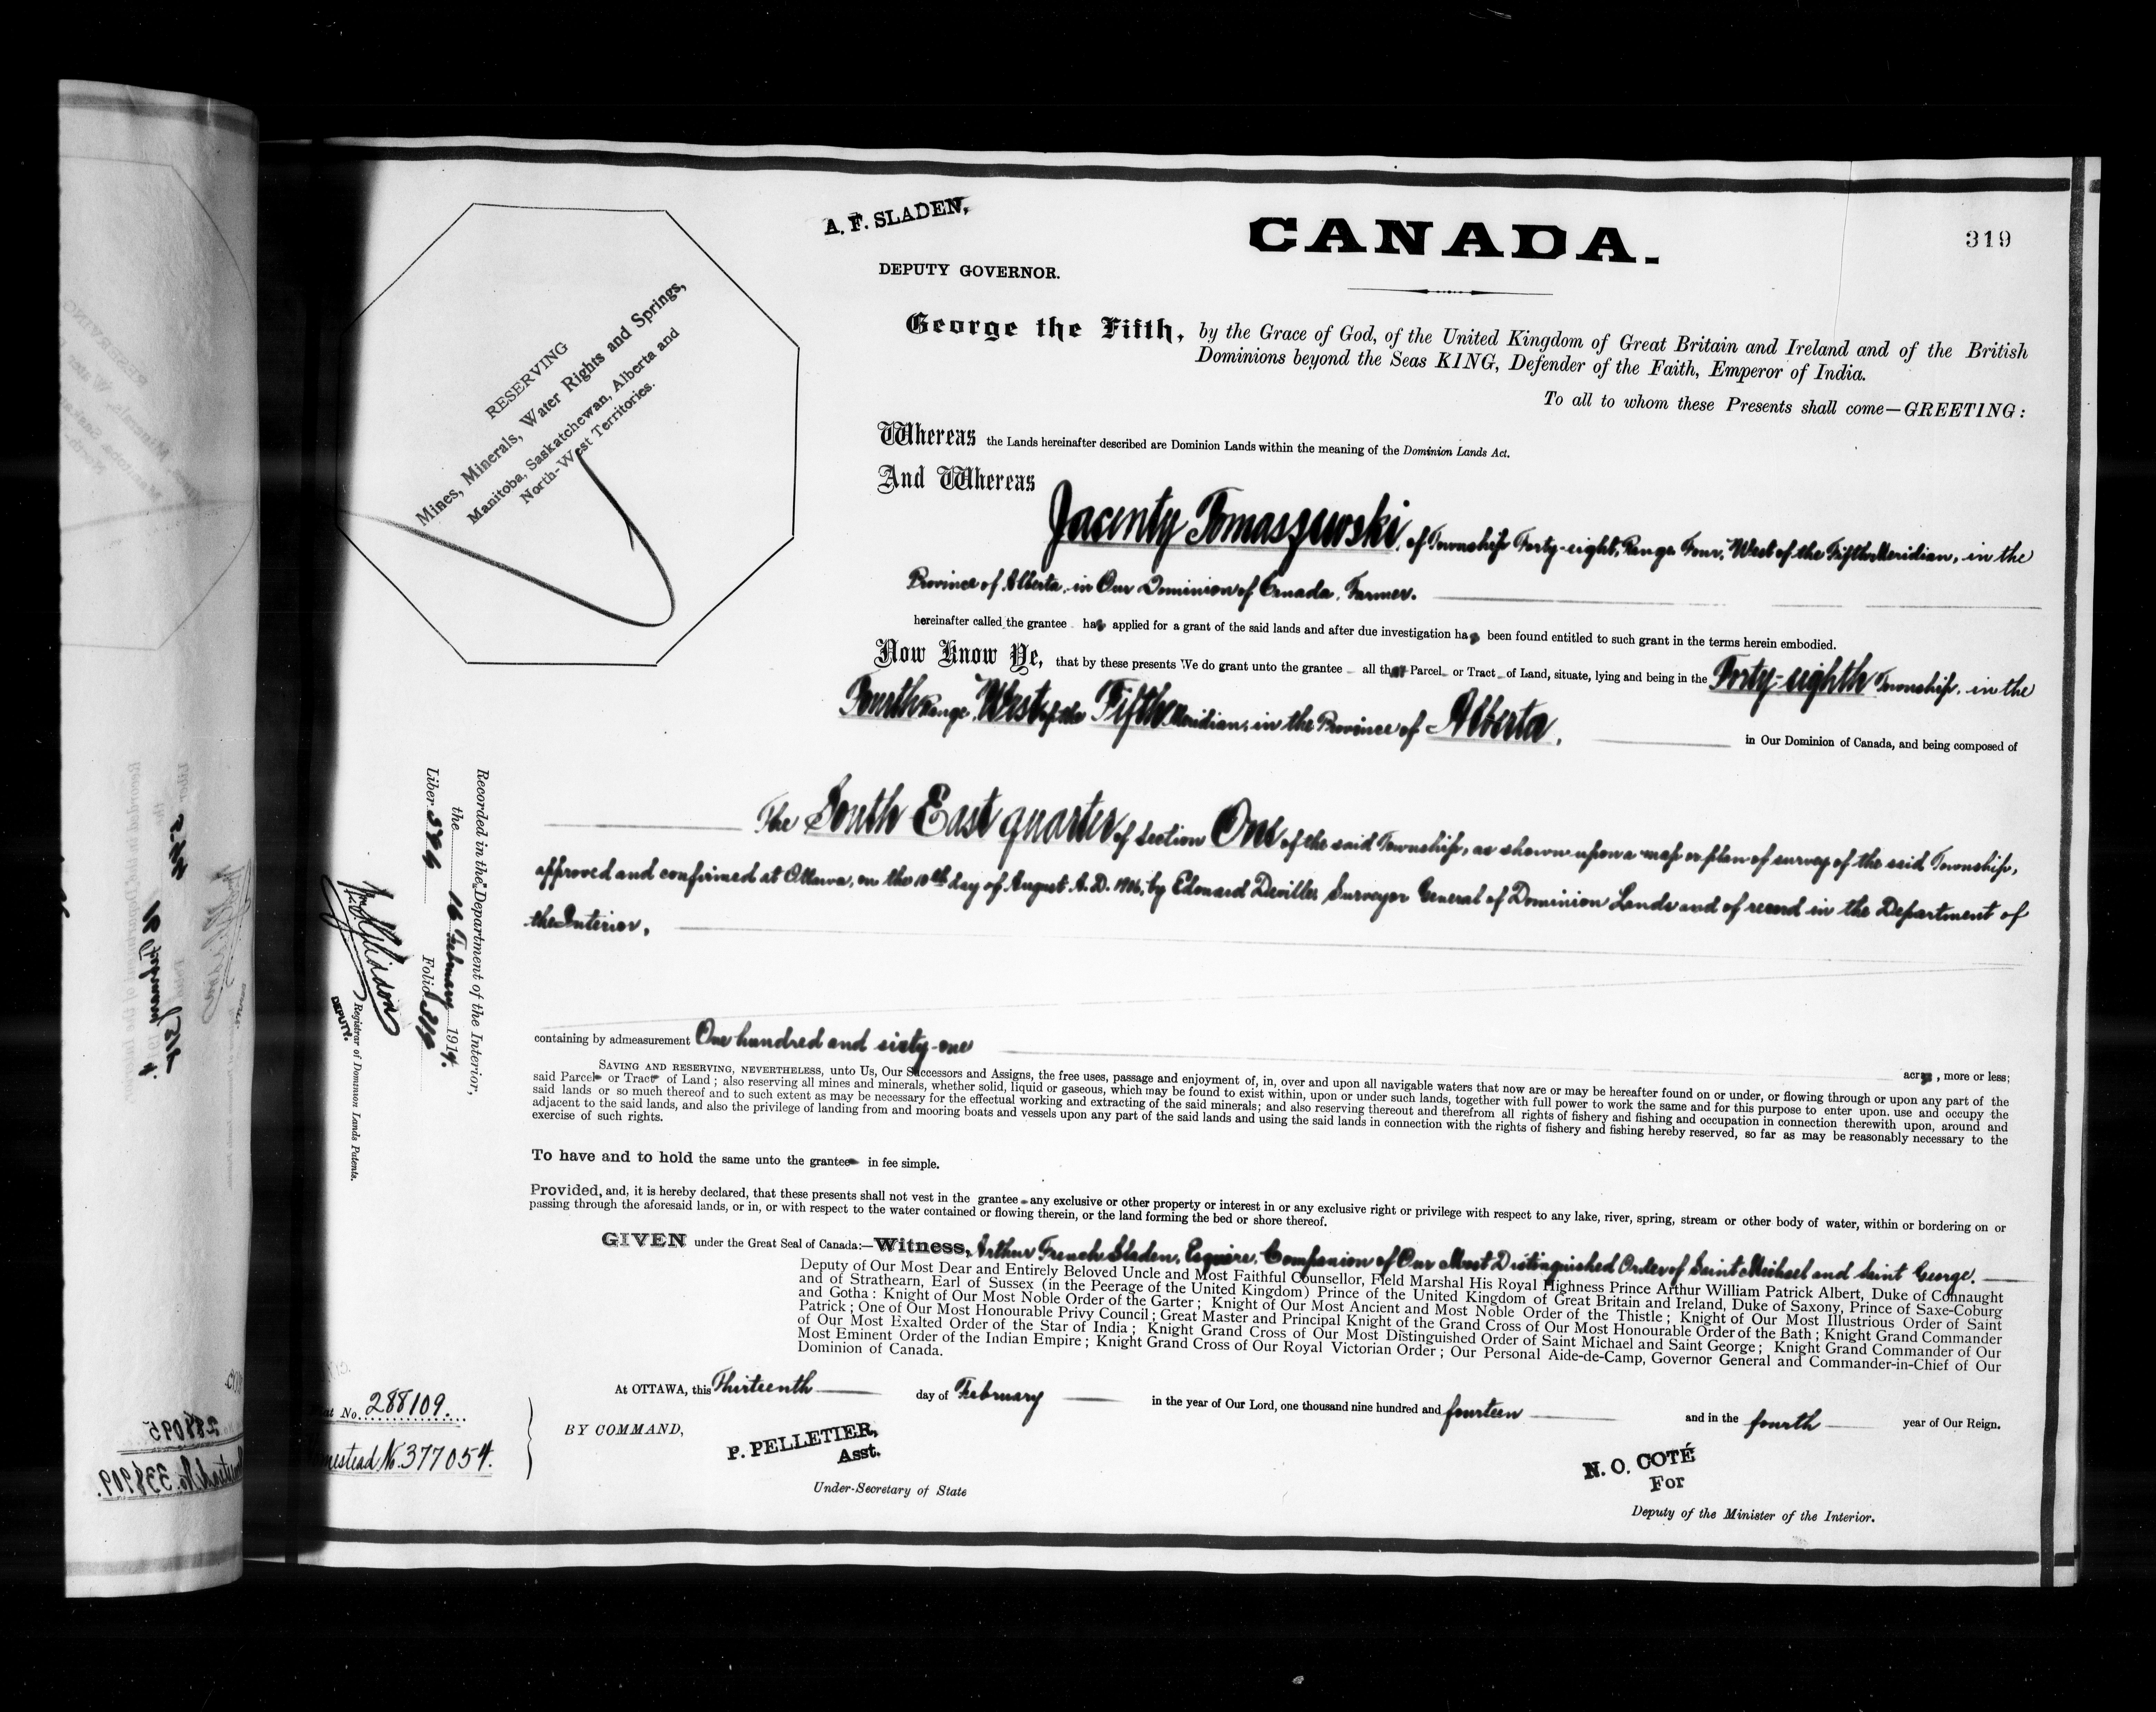 319
A. F. SLADEN,
DEPUTY GOVERNOR.
CANADA.
RESERVING
Mines, Minerals, Water Rights and Springs,
Manitoba, Saskatchewan, Alberta and
North-West Territories.
George the Fifth, by the Grace of God, of the United Kingdom of Great Britain and Ireland and of the British
Dominions beyond the Seas KING, Defender of the Faith, Emperor of India.
To all to whom these Presents shall come—GREETING:
Whereas the Lands hereinafter described are Dominion Lands within the meaning of the Dominion Lands Act.
And Whereas
Jacenty Tomaszewski, of Township Forty-eight, Range Four, West of the Fifth Meridian, in the
Province of Alberta, in Our Dominion of Canada, Farmer.
hereinafter called the grantee has applied for a grant of the said lands and after due investigation has been found entitled to such grant in the terms herein embodied.
Now Know Ye, that by these presents We do grant unto the grantee all that Parcel or Tract of Land, situate, lying and being in the Forty-eighth Township, in the
Fourth Range, West of the Fifth Meridian, in the Province of Alberta, in Our Dominion of Canada, and being composed of
The South East quarter of Section One of the said Township, as shown upon a map or plan of survey of the said Township,
approved and confirmed at Ottawa, on the 10th day of August A.D. 1906, by Edouard Deville, Surveyor General of Dominion Lands and of record in the Department of
the Interior.
containing by admeasurement One hundred and sixty-one acres, more or less;
SAVING AND RESERVING, NEVERTHELESS, unto Us, Our Successors and Assigns, the free uses, passage and enjoyment of, in, over and upon all navigable waters that now are or may be hereafter found on or under, or flowing through or upon any part of the
said Parcel or Tract of Land; also reserving all mines and minerals, whether solid, liquid or gaseous, which may be found to exist within, upon or under such lands, together with full power to work the same and for this purpose to enter upon, use and occupy the
said lands or so much thereof and to such extent as may be necessary for the effectual working and extracting of the said minerals; and also reserving thereout and therefrom all rights of fishery and fishing and occupation in connection therewith upon, around and
adjacent to the said lands, and also the privilege of landing from and mooring boats and vessels upon any part of the said lands and using the said lands in connection with the rights of fishery and fishing hereby reserved, so far as may be reasonably necessary to the
exercise of such rights.
To have and to hold the same unto the grantee in fee simple.
Provided, and, it is hereby declared, that these presents shall not vest in the grantee any exclusive or other property or interest in or any exclusive right or privilege with respect to any lake, river, spring, stream or other body of water, within or bordering on or
passing through the aforesaid lands, or in, or with respect to the water contained or flowing therein, or the land forming the bed or shore thereof.
GIVEN under the Great Seal of Canada:—Witness, Arthur French Sladen, Esquire, Companion of Our Most Distinguished Order of Saint Michael and Saint George.
Deputy of Our Most Dear and Entirely Beloved Uncle and Most Faithful Counsellor, Field Marshal His Royal Highness Prince Arthur William Patrick Albert, Duke of Connaught
and of Strathearn, Earl of Sussex (in the Peerage of the United Kingdom) Prince of the United Kingdom of Great Britain and Ireland, Duke of Saxony, Prince of Saxe-Coburg
and Gotha: Knight of Our Most Noble Order of the Garter; Knight of Our Most Ancient and Most Noble Order of the Thistle; Knight of Our Most Illustrious Order of Saint
Patrick; One of Our Most Honourable Privy Council; Great Master and Principal Knight of the Grand Cross of Our Most Honourable Order of the Bath; Knight Grand Commander
of Our Most Exalted Order of the Star of India; Knight Grand Cross of Our Most Distinguished Order of Saint Michael and Saint George; Knight Grand Commander of Our
Most Eminent Order of the Indian Empire; Knight Grand Cross of Our Royal Victorian Order; Our Personal Aide-de-Camp, Governor General and Commander-in-Chief of Our
Dominion of Canada.
At OTTAWA, this Thirteenth day of February in the year of Our Lord, one thousand nine hundred and fourteen and in the fourth year of Our Reign.
BY COMMAND,
P. PELLETIER,
Asst.
Under-Secretary of State
N. O. COTÉ
For
Deputy of the Minister of the Interior.
Recorded in the Department of the Interior,
the 16 February 1914.
Liber Folio 319
Registrar of Dominion Lands Patents.
DEPUTY.
No. 288109.
No. 377054.